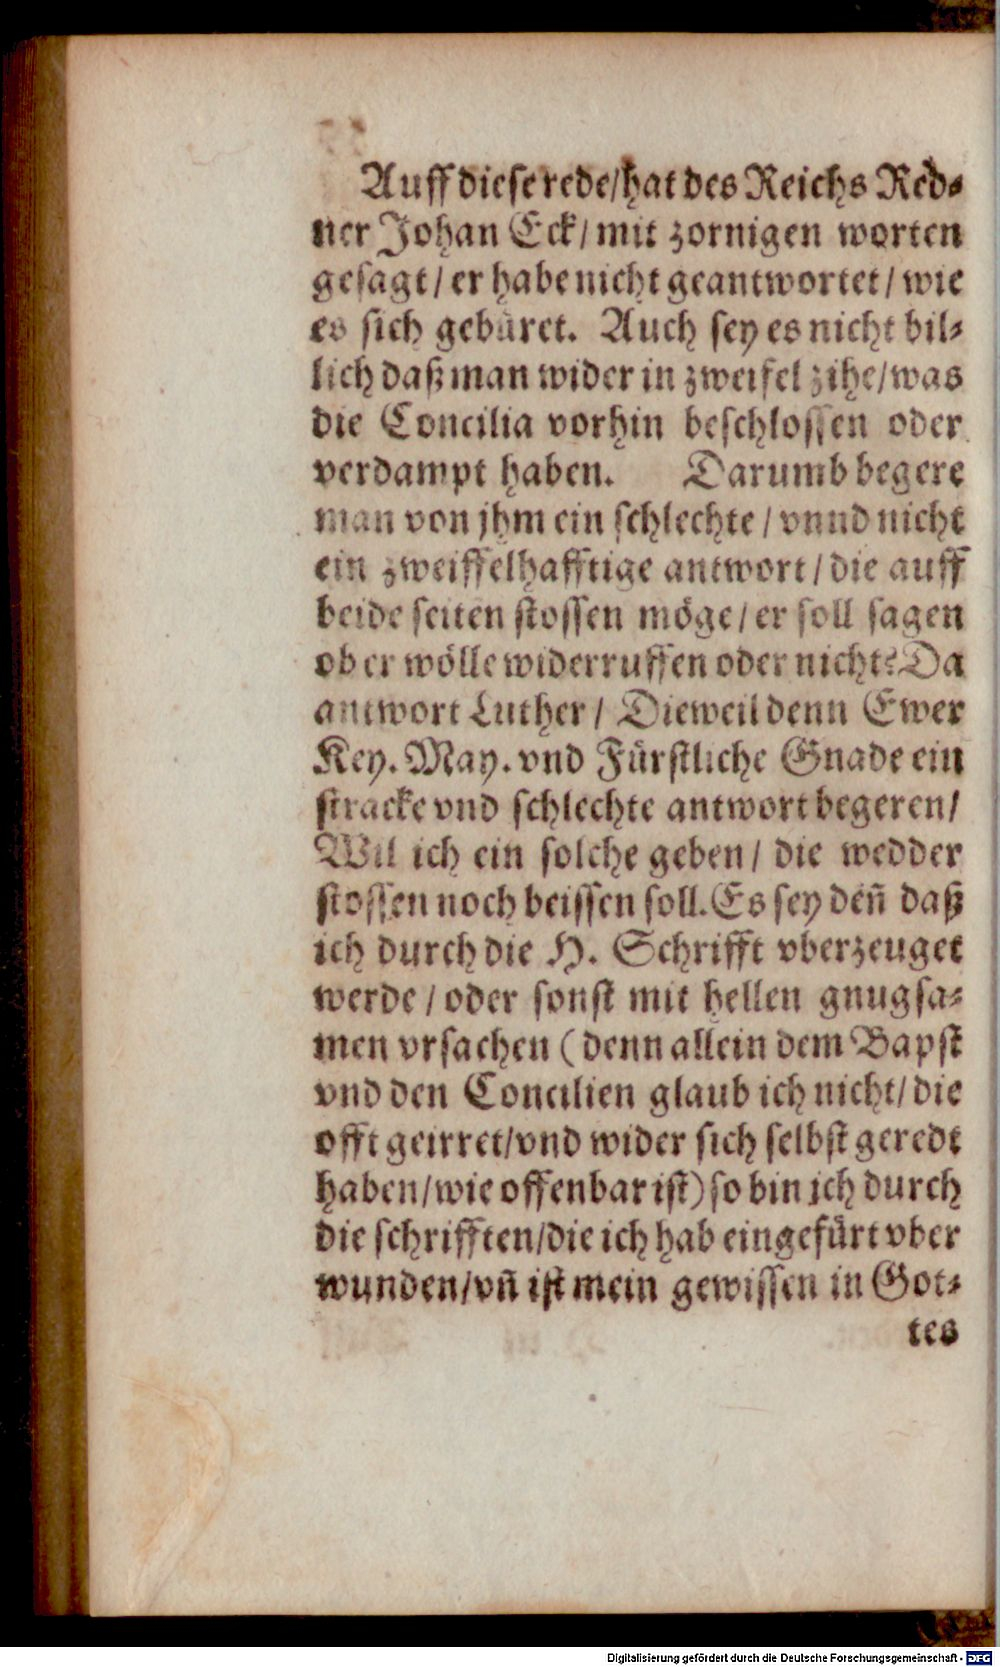 Auff diese rede/hat des Reichs Red-
ner Johan Eck/ mit zornigen worten
gesagt/ er habe nicht geantwortet/ wie
es sich gebüret. Auch sey es nicht bil-
lich daß man wider in zweifel zihe/was
die Concilia vorhin beschlossen oder
verdampt haben. Darumb begere
man von jhm ein schlechte/ vnnd nicht
ein zweiffelhafftige antwort/ die auff
beide seiten stossen möge/ er soll sagen
ob er wölle widerruffen oder nicht? Da
antwort Luther/ Dieweil denn Ewer
Key. May. vnd Fürstliche Gnade ein
stracke vnd schlechte antwort begeren/
Wil ich ein solche geben/ die wedder
stossen noch beissen soll. Es sey deñ daß
ich durch die H. Schrifft vberzeuget
werde/ oder sonst mit hellen gnugsa-
men vrsachen (denn allein dem Bapst
vnd den Concilien glaub ich nicht/ die
offt geirret/vnd wider sich selbst geredt
haben/wie offenbar ist) so bin ich durch
die schrifften/die ich hab eingefürt vber
wunden/vñ ist mein gewissen in Got-
tes
Digitalisierung gefördert durch die Deutsche Forschungsgemeinschaft - DFG